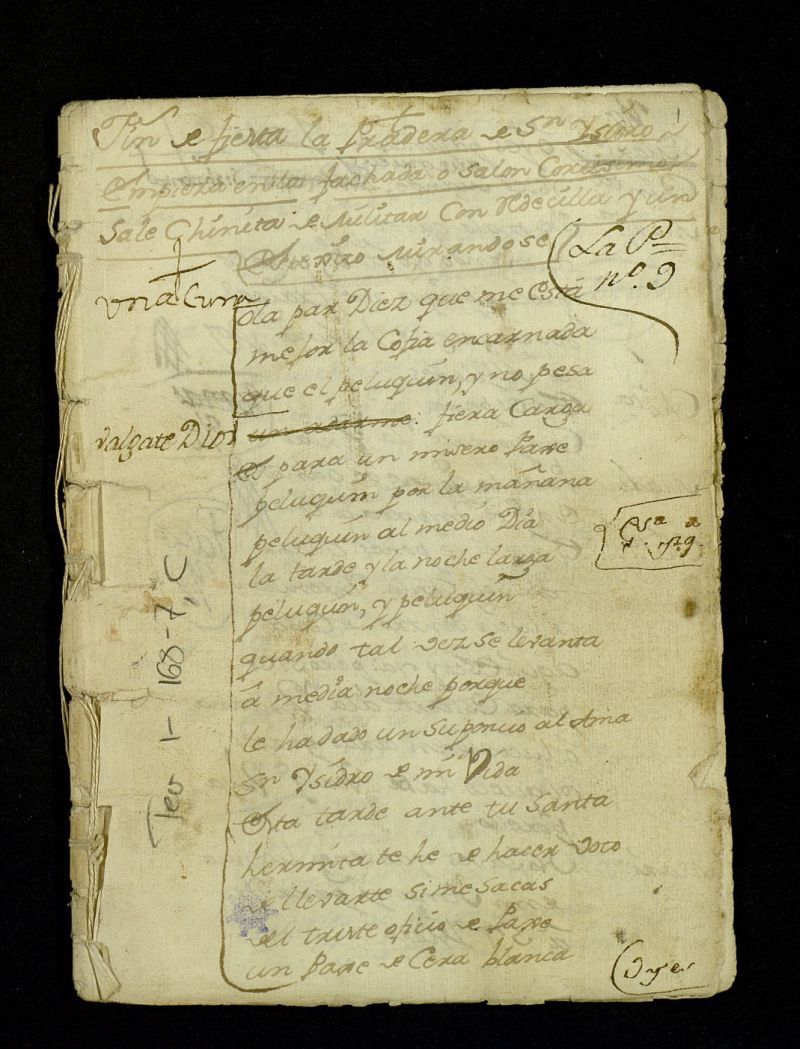 Fin de fiesta la Pradera de Sn Ysidro
Empieza en la fachada o salon Cortisimo
Sale Chinita de Militar con redecilla y un
Espejito mirandose
La Pª
nº. 9
una Cura
ola par Diez que me está
mejor la Cofia encarnada
que el peluquin, y no pesa
un adarme. fiera Carga
valgate Dios
es para un misero Paxe
peluquin por la mañana
peluquin al medio Dia
la tarde y la noche larga
peluquin, y peluquin
quando tal vez se levanta
á media noche porque
le ha dado un suponcio al Ama
Sn Ysidro de mi Vida
Esta tarde ante tu Santa
hermita te he de hacer voto
de llevarte si me sacas
del triste oficio de Paxe
un Paxe de Cera blanca
Tea 1-168-7, C